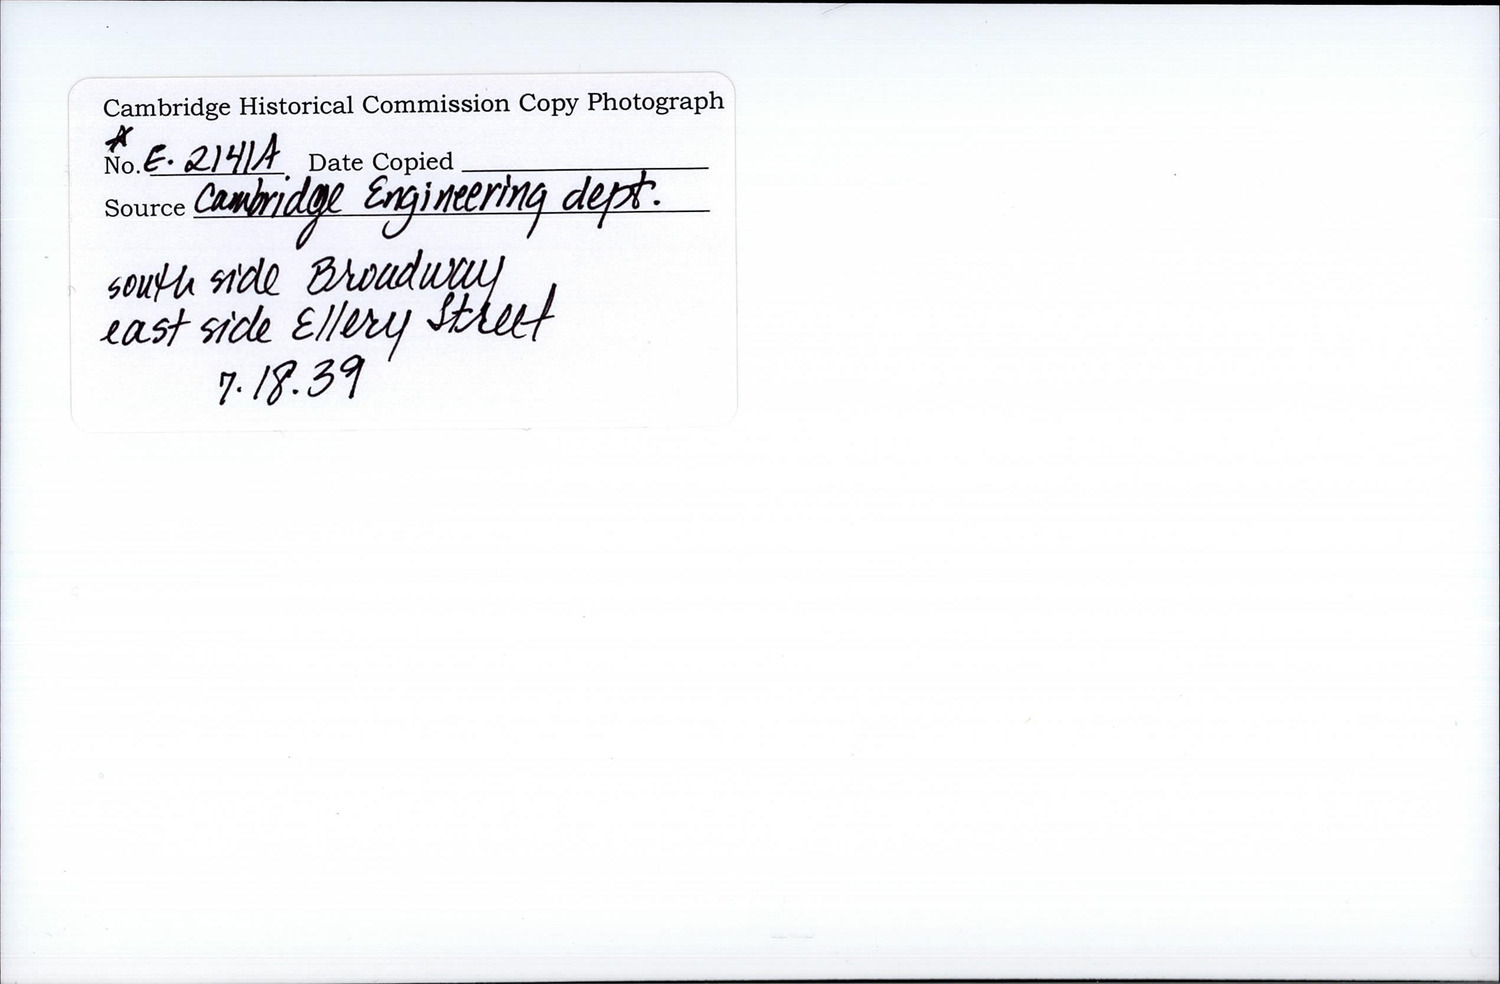 Cambridge Historical Commission Copy Photograph
*
No. E. 2141A Date Copied
Source Cambridge Engineering dept.
south side Broadway
east side Ellery Street
7.18.39